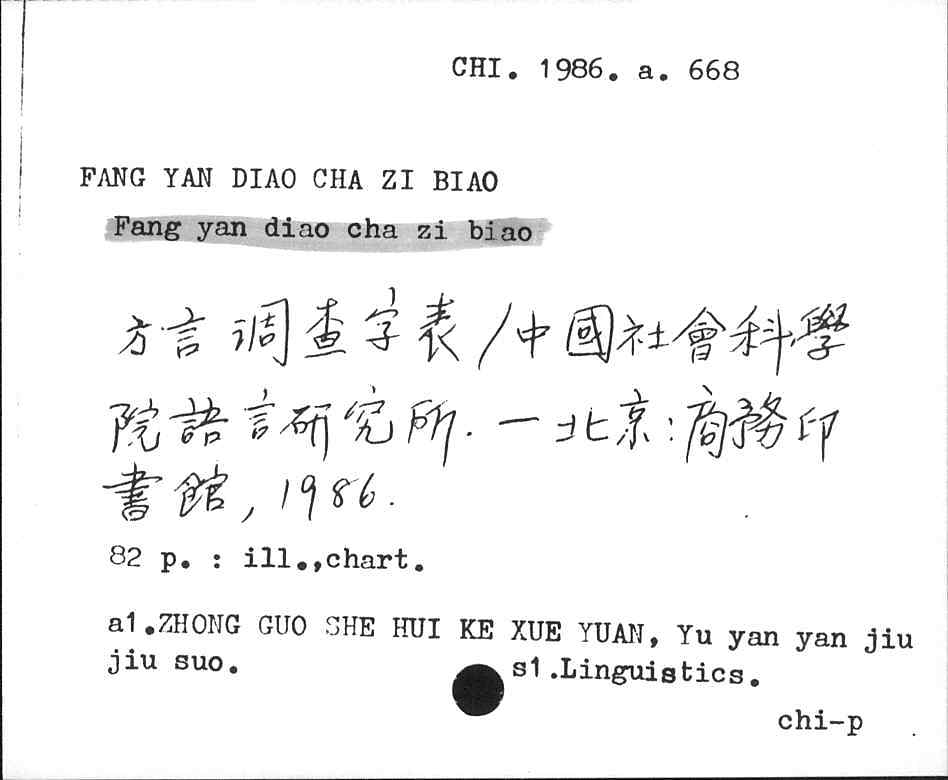 CHI. 1986. a. 668
FANG YAN DIAO CHA ZI BIAO
Fang yan diao cha zi biao
方言调查字表/中國社會科學
院語言研究所. — 北京:商務印
書館, 1986.
82 p. : ill.,chart.
a1.ZHONG GUO SHE HUI KE XUE YUAN, Yu yan yan jiu
jiu suo. s1.Linguistics.
chi-p